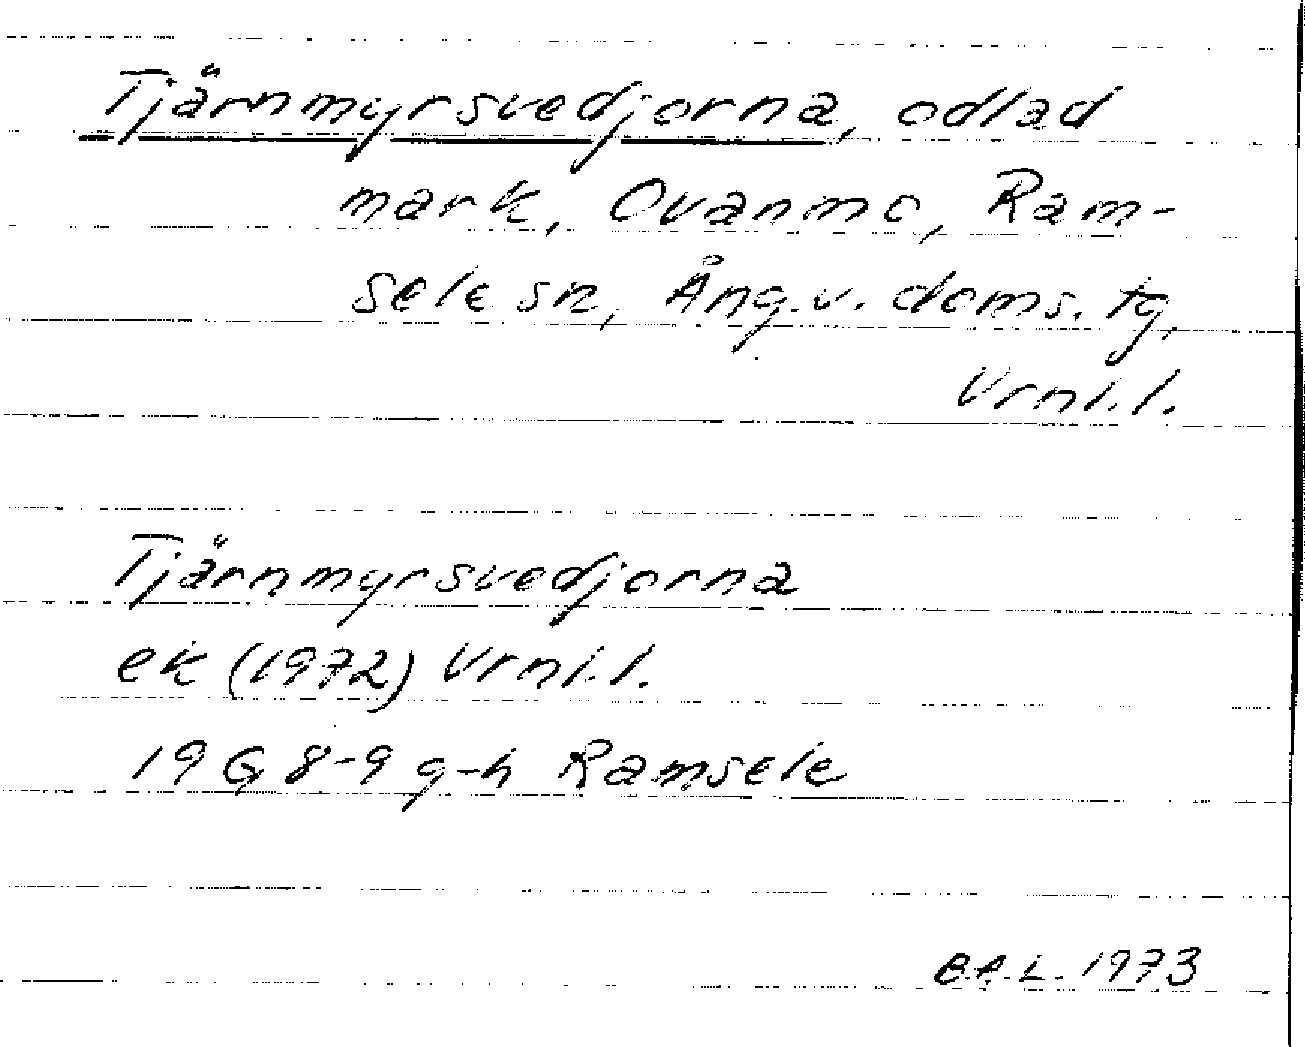 Tjärnmyrsvedjorna, odlad
mark, Ovanmo, Ram-
sele sn, Ång.v. doms. tg,
Vrnl.l.
Tjärnmyrsvedjorna
ek (1972) Vrnl.l.
19 G 8-9 g-h Ramsele
1973